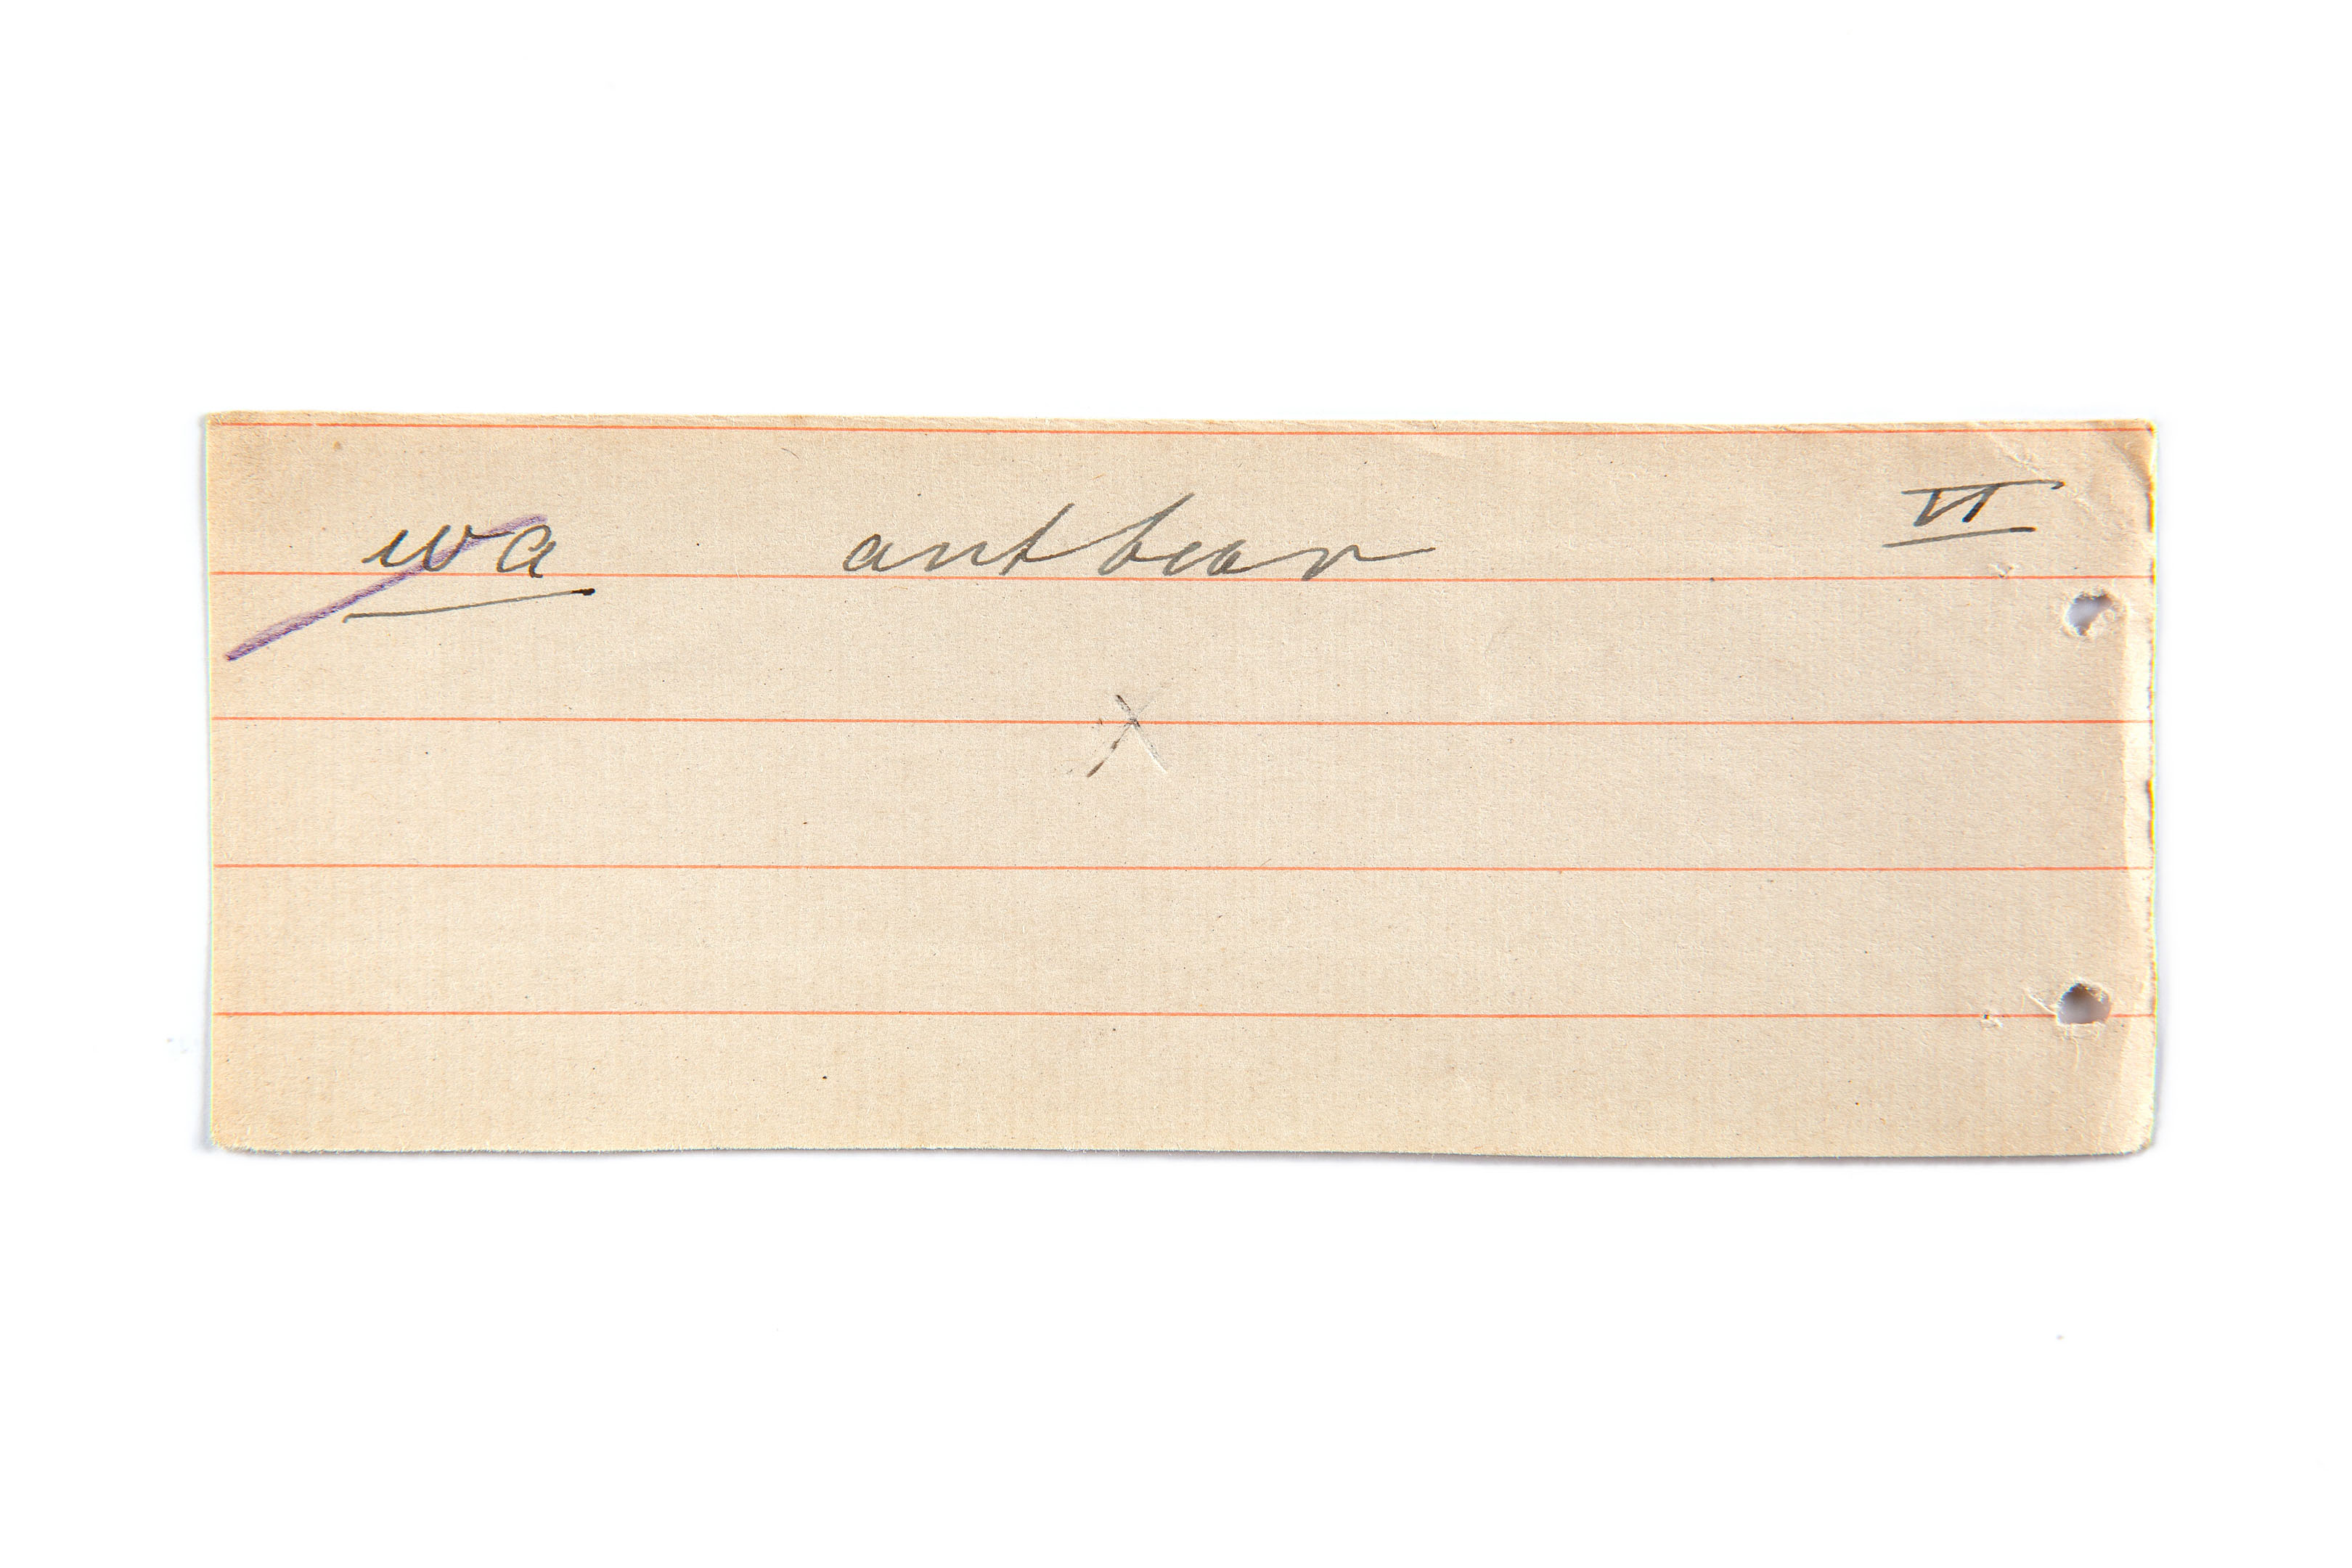 wa antbear VI
x